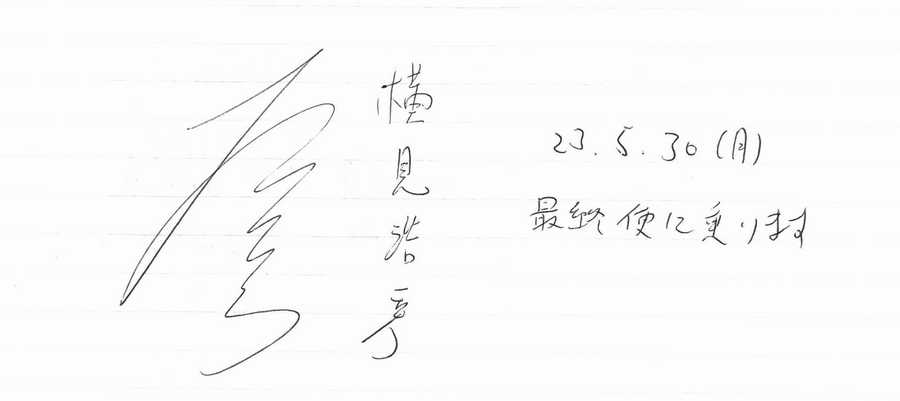 横見浩彦
23.5.30(月)
最終便に乗ります